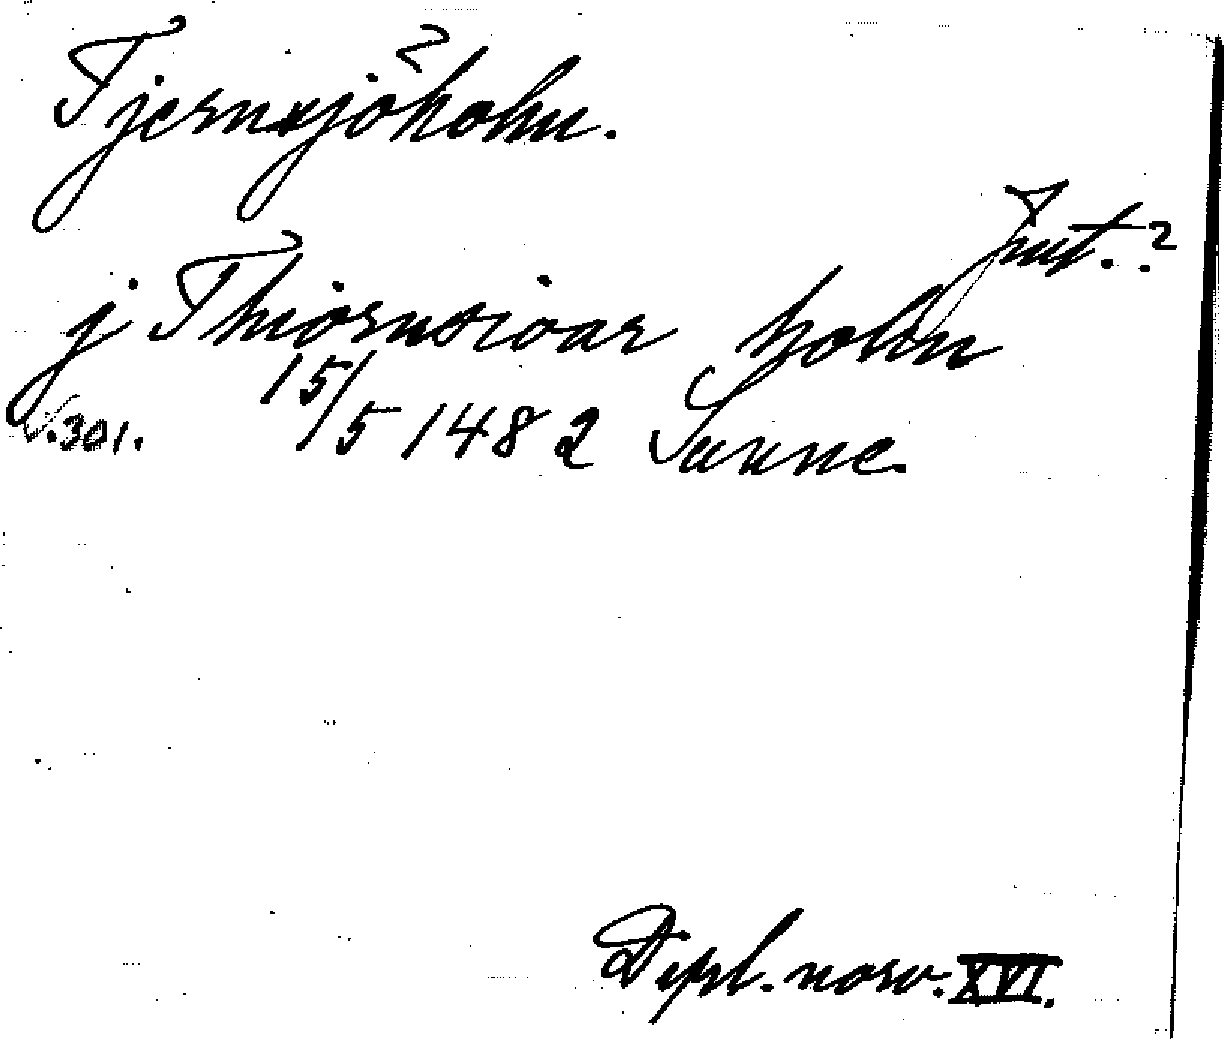 Tjernsjöholm.
Jmt.?
j Thiørnsioar holm
s.301. 15/5 1482 Sunne.
Dipl. norv. XVI.